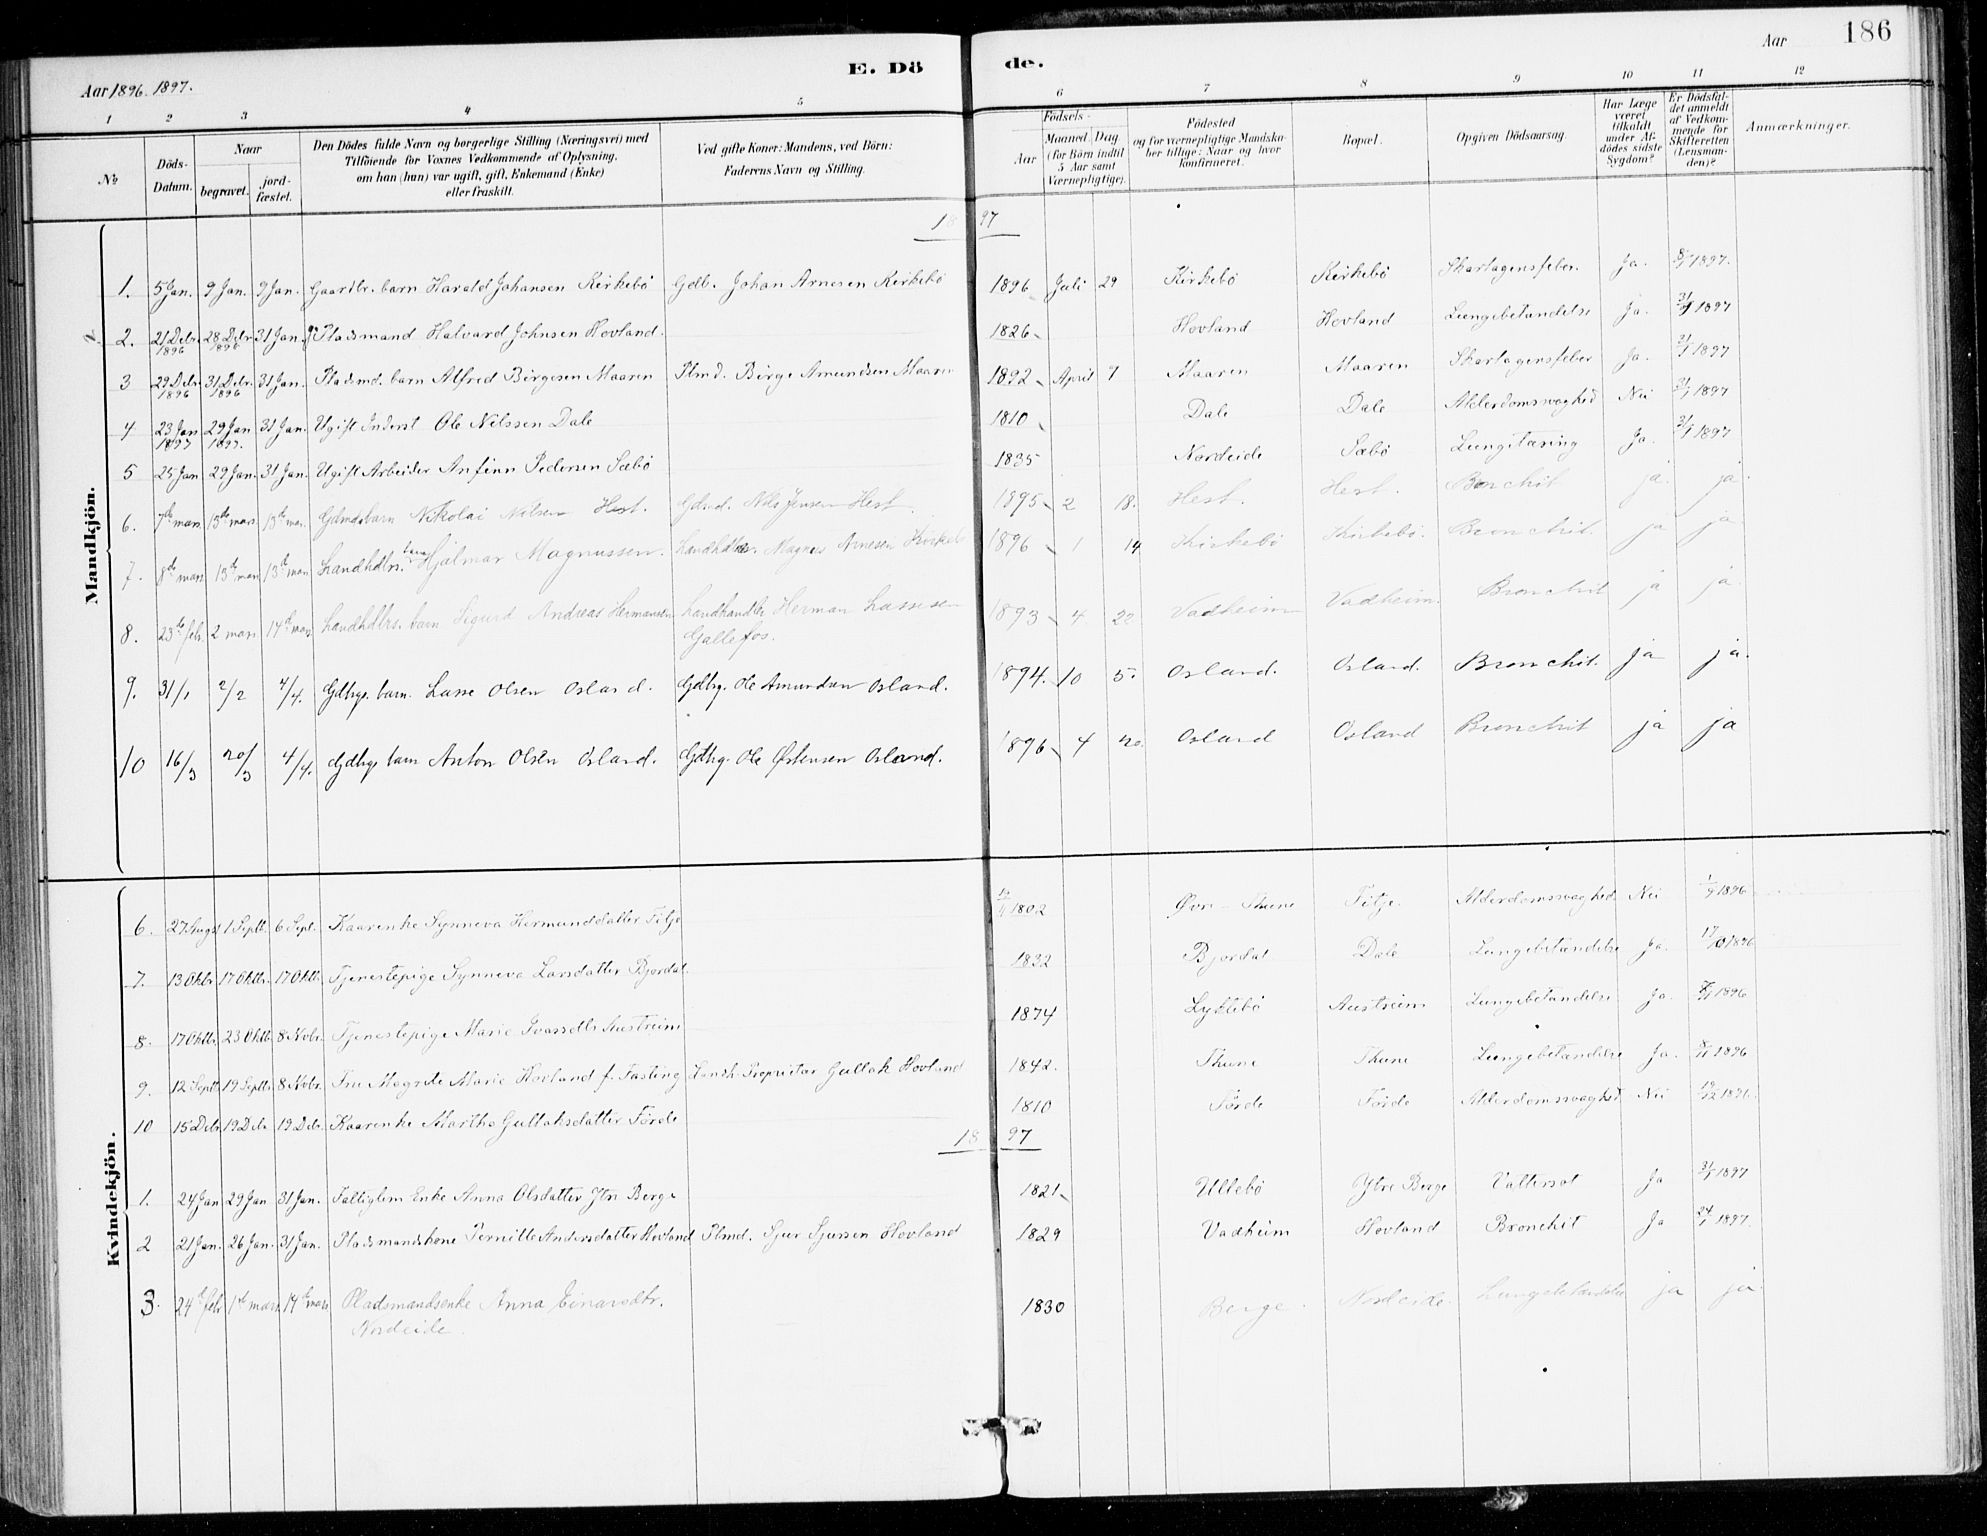 Aar 1896. 1897.
E. Dö de.
Aar 186
1 2 3 4 5 6 7 8 9 10 11 12
No
Döds-Datum.
Naar
begravet.
jord-fæstet.
Den Dödes fulde Navn og borgerlige Stilling (Næringsvei) med
Tilföiende for Voxnes Vedkommende af Oplysning,
om han (hun) var ugift, gift, Enkemand (Enke)
eller fraskilt.
Ved gifte Koner: Mandens, ved Börn:
Faderens Navn og Stilling.
Födsels-
Aar
Maaned. Dag
(for Börn indtil
5 Aar samt
Værnepligtige).
Födested
og for værnepligtige Mandska-
ber tillige: Naar og hvor
konfirmeret.
Bopæl.
Opgiven Dödsaarsag.
Har Læge
været
tilkaldt
under Af-
dödes sidste
Sygdom?
Er Dödsfal-
det anmeldt
af Vedkom-
mende for
Skifteretten
(Lensman-
den)?
Anmærkninger.
Mandkjön.
1897
1. 5 Jan. 9 Jan. 9 Jan. Gaardbr. barn Harald Johansen Kirkebö Gdb. Johan Arnesen Kirkebö 1896 Juli 29 Kirkebö Kirkebö Skarlagensfeber. Ja. 1897.
2. 21 Debr. 1896 28 Debr. 1896 31 Jan. Pladsmand Halvard Johnsen Hovland. 1826 Hovland Hovland Lungebetændelse Ja. 31/1 1897
3 29 Debr. 1896 31 Debr. 1896 31 Jan. Pladsmd. barn Alfred Börgesen Maaren Plmd. Börge Amundsen Maaren 1892 April 7 Maaren Maaren Skarlagensfeber Ja. 31/1 1897
4 23 Jan 1897 29 Jan 1897. 31 Jan. Ugift Inderst Ole Nilssen Dale 1810 Dale Dale Alderdomssvaghed Nei 31/1 1897
5 25 Jan 29 Jan. 31 Jan. Ugift Arbeider Anfinn Pedersen Sæbö 1835 Nordeide Sæbö Lungetæring Ja. 31/1 1897
6. 7de mars 13de mars. 13de mar. Gdmdsbarn Nikolai Nilsen Hest. Gdmd. Nils Jensen Hest. 1895 2 18. Hest. Hest. Bronchit ja. ja.
7. 8de mars 13de mars 13de mar. Landhdlrs. barn Hjalmar Magnussen. Landhdler. Magnus Arnesen Kirkeb 1896 1 14 Kirkebö Kirkebö. Bronchit. ja ja
8. 23de febr. 2 mars 14de mars Landhdlrs. barn Sigurd Andreas Hermansen Landhandler Herman Lassesen
Gallefos. 1893 4 22 Vadheim Vadheim. Bronchit ja ja.
9. 31/1 2/2 4/4. Gdbrgr. barn. Lasse Olsen Osland. Gdbrg. Ole Amundsen Osland. 1894. 10 5. Osland. Osland. Bronchit. ja ja.
10 16/3 20/3 4/4. Gdbrg. barn Anton Olsen Osland. Gdbrg. Ole Østensen Osland. 1896 4 20. Osland Osland Bronchit ja ja
Kvindekjön.
6. 27 Augst 1 Septb. 6 Sept. Kaarenke Synneva Hermunddatter Tilje 1802 Øvre-Thune Tilje. Alderdomssvaghed Nei 1/9 1896
7. 13 Oktbr 17 Oktbr. 17 Oktb. Tjenestepige Synneva Larsdatter Bjordal. 1832 Bjordal Dale Lungebetændelse Ja. 17/10 1896
8. 17 Oktbr. 23 Oktb. 8 Novbr. Tjenestepige Marie Ivarsdtr Austreim 1874 Lyktebö Austreim Lungebetændelse Ja. 1896
9. 12 Septb 19 Septbr. 8 Novbr. Fru Magrete Marie Hovland f. Fasting Lensh. Proprietær Gullak Hovland 1842. Thune Thune Lungebetændelse Ja. 1896
10 15 Debr. 19 Debr. 19 Debr. Kaarenke Martha Gullaksdatter Förde 1810 Förde Förde Alderdomssvaghed Nei 19/12 1896.
1897
1. 24 Jan 29 Jan 31 Jan. Fattiglem Enke Anna Olsdatter Ytre Berge 1821 Ullebö Ytre Berge Vattersot Ja 31/1 1897
2 21 Jan. 26 Jan. 31 Jan. Pladsmandskone Pernille Andersdatter Hovland Plmd. Sjur Sjursen Hovland 1829 Vadheim Hovland Bronchit Ja 24/1 1897.
3. 24de febr. 1ste mars. 14de mars Pladsmandsenke Anna Einarsdtr.
Nordeide. 1830 Berge. Nordeide. Lungebetændelse ja ja.